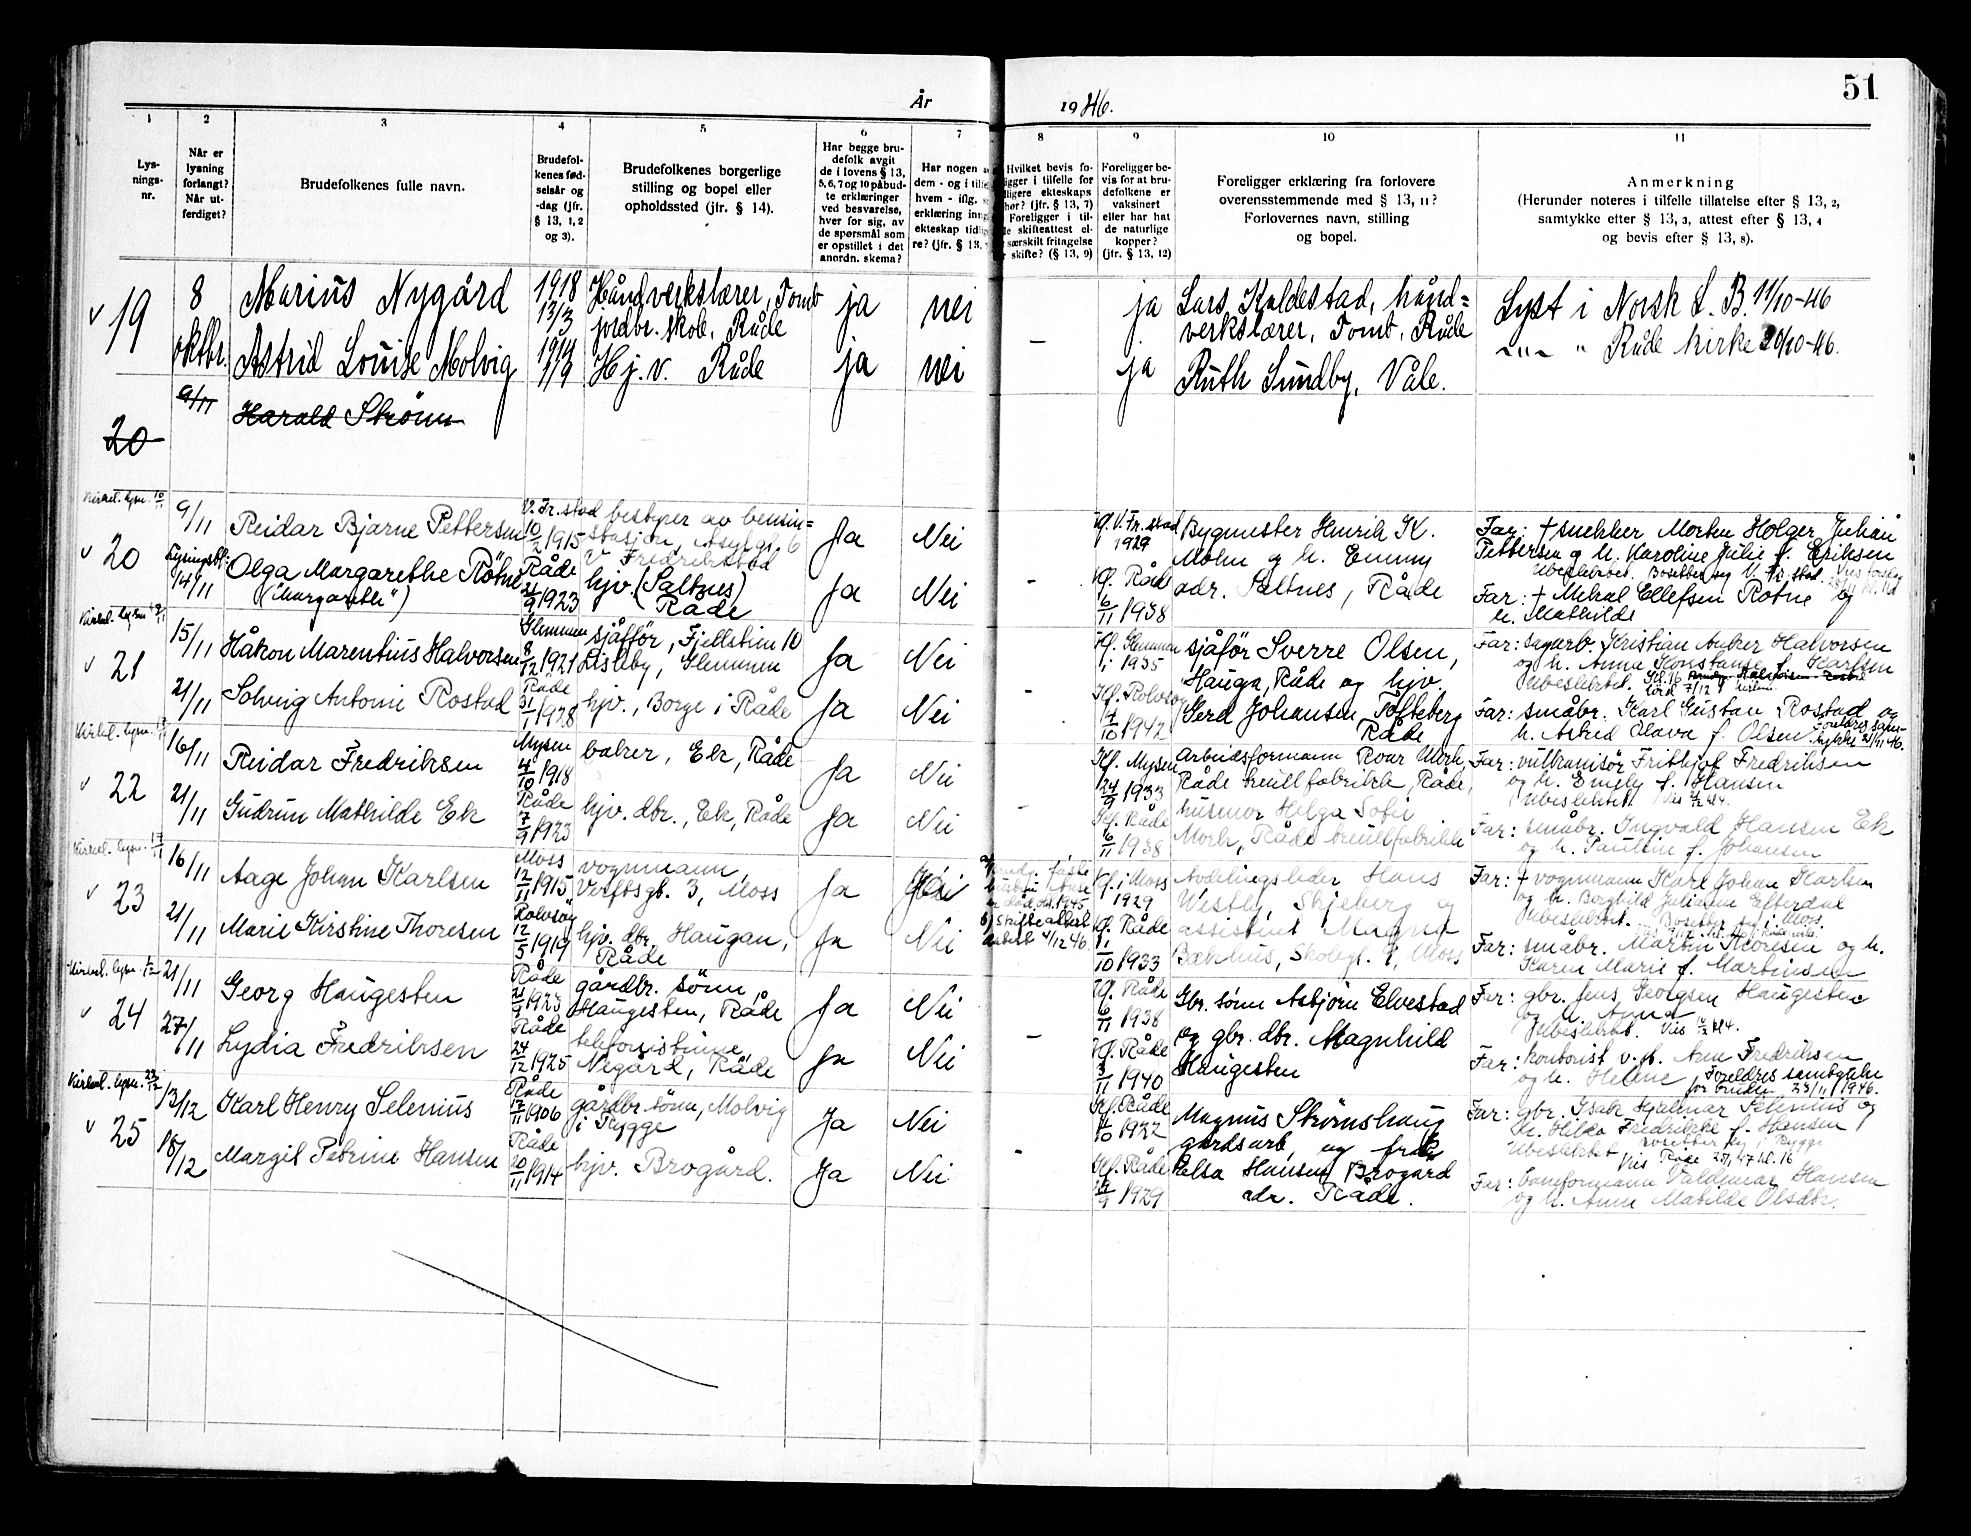 51
År 1946.
1 2 3 4 5 6 7 8 9 10 11
Lysningsnr.
Når er lysning forlangt? Når utferdiget?
Brudefolkenes fulle navn.
Brudefolkenes fødselsår og -dag (jfr. § 13, 1, 2 og 3).
Brudefolkenes borgerlige stilling og bopel eller opholdssted (jfr. § 14).
Har begge brudefolk avgit de i lovens § 13, 5, 6, 7 og 10 påbudte erklæringer ved besvarelse, hver for sig, av de spørsmål som er opstillet i det anordn. skema?
Har nogen
dem - og i tilfe
hvem - iflg.
erklæring inng
ekteskap tidlig
re? (jfr. § 13,
Hvilket bevis fo-
igger i tilfelle for
ligere ekteskaps
hør? (jfr. § 13, 7)
Foreligger i til-
le skifteattest el-
særskilt fritagelse
skifte? (§ 13, 9)
Foreligger bevis for at brudefolkene er vaksinert eller har hat de naturlige kopper? (jfr. § 13, 12)
Foreligger erklæring fra forlovere overensstemmende med § 13, 11? Forlovernes navn, stilling og bopel.
Anmerkning
(Herunder noteres i tilfelle tillatelse efter § 13, 2, samtykke efter § 13, 3, attest efter § 13, 4 og bevis efter § 13, 8).
v 19
8 oktbr.
Marius Nygård
1918 13/3
Håndverkslærer, Tomb jordbr. skole, Råde
ja
nei
ja
Lars Kaldestad, håndverkslærer, Tomb, Råde
Lyst i Norsk L. B. 11/10-46
Astrid Louise Molvig
Hj. v. Råde
ja
nei
-
ja
Ruth Sundby, Våle.
-"- " Råde kirke 20/10-46.
20
9/11
Harald Strøm
Kirkel. lysn. 10/11
v 20
9/11
Reidar Bjarne Pettersen
V. Fr.stad 10/2 1915
bestyrer av bensinstasjon, Asylgt. 6 V. Fredrikstad
Ja
Nei
V. Fr.stad 1929
Bygmester Henrik K. Molin og h. Emmy adr. Saltnes, Råde
Far: † snekker Morten Holger Julian Pettersen og h. Karoline Julie f. Eriksen
Ubeslektet. Bosetter seg V. Fr.stad.
14/11
Olga Margarethe Rötne
("Margarethe")
Råde 21/9 1923
hjv. (Saltnes) Råde
Ja
Nei
-
Råde 6/11 1938
Far: † Mikal Ellefsen Rotne og h. Mathilde
Kirkel. lysn. 17/11
v 21
15/11
Håkon Marentius Halvorsen
Glemmen 8/12 1921
sjåfför, Fjellstien 10 Lisleby, Glemmen
Ja
Nei
Kf. Glemmen 1935
sjåför Sverre Olsen, Hauga, Råde og hjv. Gerd Johansen Tofteberg Råde
Far: sagarb. Kristian Anker Halvorsen og h. Anna Konstanse f. Karlsen
Ubeslektet. Kl. 16 lörd 7/12
21/11
Solveig Antonie Rostad
Råde 31/1 1928
hjv., Borge i Råde
Ja
Nei
-
Kf. Rolvsöy 4/10 1942
Far: småbr. Karl Gustav Rostad og h. Astrid Olava f. Olsen
Foreldres samtykke 21/11 46.
Kirkel. lysn. 17/11
v 22
16/11
Reidar Fredriksen
Mysen 4/10 1918
baker, Ek, Råde
Ja
Nei
Kf. Mysen 24/9 1933
Arbeidsformann Roar Mork, Råde tresullfabrikk, Råde, husmor Helga Sofie Mork, Råde tresullfabrikk
Far: vulkanisör Frithjof Fredriksen og h. Emely f. Hansen
Ubeslektet.
21/11
Gudrun Mathilde Ek
Råde 7/9 1923
hjv. dbr., Ek, Råde
Ja
Nei
-
Kf. Råde 6/11 1938
Far: småbr. Ingvald Hansen Ek og h. Pauline f. Johansen
Kirkel. lysn. 17/11
v 23
16/11
Aage Johan Karlsen
Moss 12/11 1915
vognmann, Verftsgt. 3, Moss
Ja
Ja
b) Skifteattest 4/12 46.
Kf. i Moss 1929
Avdelingsleder Hans Westby, Skjeberg og assistent Magna Bækhus, Skolegt. 9, Moss
Far: † vognmann Karl Johan Karlsen og h. Borghild Juliane Efterdal
Ubeslektet. Bosetter seg i Moss.
21/11
Marie Kirstine Thoresen
Rolvsöy 12/5 1919
hjv. dbr, Haugan, Råde
Ja
Nei
Kf. Råde 1/10 1933
Far: småbr. Martin Thoresen og h. Karen Marie f. Martinsen
Kirkel. lysn. 1/12
v 24
21/11
Georg Haugesten
Råde 21/9 1923
gårdbr. sönn, Haugesten, Råde
Ja
Nei
Kf. Råde 6/11 1938
Gbr. sönn Asbjörn Elvestad og gbr. dbr. Magnhild Haugesten
Far: gbr. Jens Georgsen Haugesten og h. Anna
Ubeslektet.
27/11
Lydia Fredriksen
Råde 24/12 1925
telefonistinne, Negård, Råde
Ja
Nei
-
Kf. Råde 3/11 1940
Far: kontorist v. Arne Fredriksen og h. Helene
Foreldres samtykke for bruden 23/11 1946.
Kirkel. lysn. 22/12
v 25
13/12
Karl Henry Selenius
Råde 17/11 1906
gårdbr.sönn, Molvig i Rygge
Ja
Nei
Kf. Råde 1/10 1922
Magnus Strömshaug gårdsarb. og frk. Palsa Hansen Brogård adr. Råde.
Far: gbr. Isak Hjalmar Selenius og h. Hilda Fredrikke f. Hansen
Ubeslektet
Bosetter seg i Rygge
Vies Råde
18/12
Margit Petrine Hansen
Råde 20/11 1914
hjv. Brogård.
Ja
Nei
-
Kf. Råde 1929
Far: baneformann Valdemar Hansen og h. Anna Matilde Olsdtr.